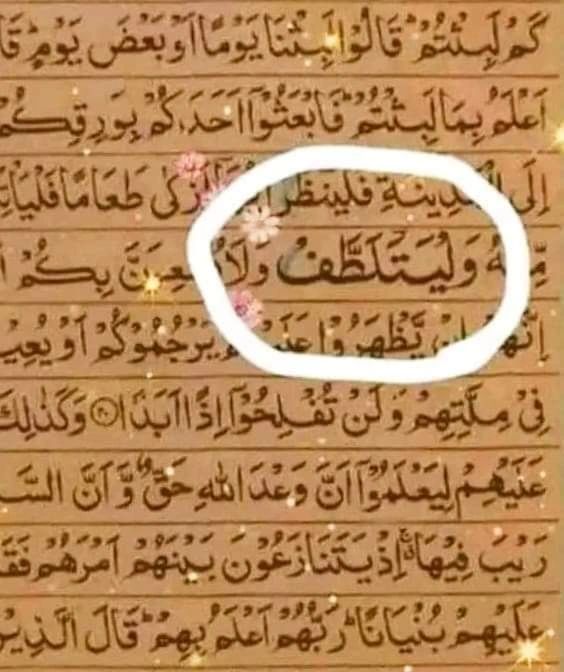 كَمْ لَبِثْتُمْ ؕ قَالُوْا لَبِثْنَا يَوْمًا اَوْ بَعْضَ يَوْمٍ ؕ قَا
اَعْلَمُ بِمَا لَبِثْتُمْ ؕ فَابْعَثُوْۤا اَحَدَكُمْ بِوَرِقِكُمْ
اِلَى الْمَدِيْنَةِ فَلْيَنْظُرْ اَزْكٰى طَعَامًا فَلْيَاْتِ
مِّنْهُ وَلْيَتَلَطَّفْ وَلَا يُشْعِرَنَّ بِكُمْ
اِنَّهُمْ اِنْ يَّظْهَرُوْا عَلَيْكُمْ يَرْجُمُوْكُمْ اَوْ يُعِيْ
فِيْ مِلَّتِهِمْ وَلَنْ تُفْلِحُوْۤا اِذًا اَبَدًا ۟۲۰ وَكَذٰلِكَ
عَلَيْهِمْ لِيَعْلَمُوْۤا اَنَّ وَعْدَ اللّٰهِ حَقٌّ وَّاَنَّ السَّ
رَيْبَ فِيْهَا ۚ اِذْ يَتَنَازَعُوْنَ بَيْنَهُمْ اَمْرَهُمْ فَقَ
عَلَيْهِمْ بُنْيَانًا ؕ رَبُّهُمْ اَعْلَمُ بِهِمْ ؕ قَالَ الَّذِيْ